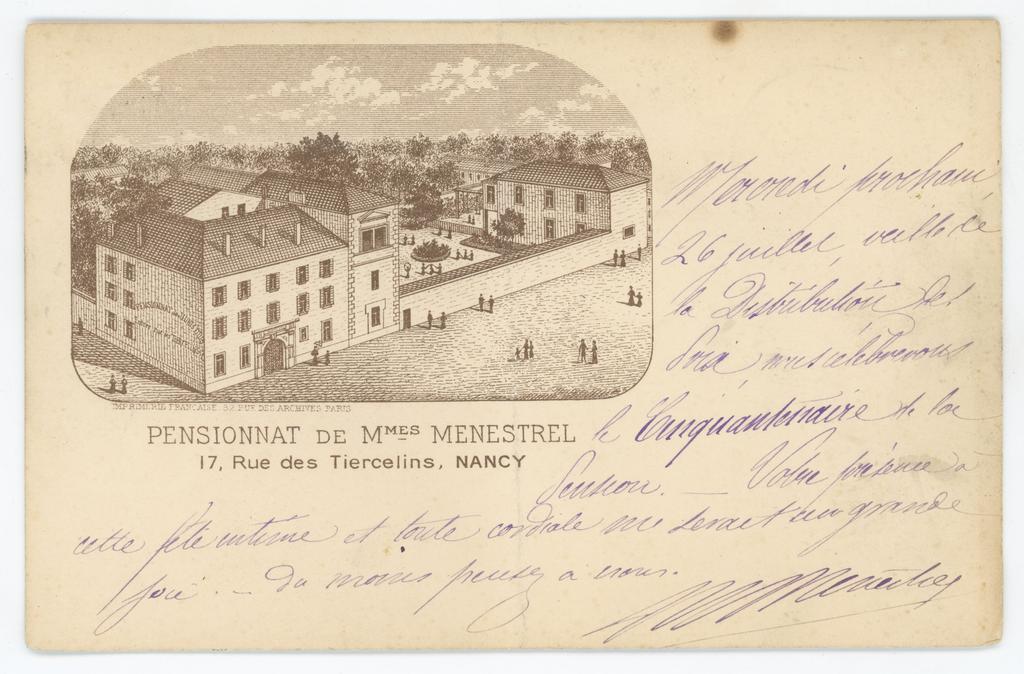 IMPRIMERIE FRANÇAISE. 82 RUE DES ARCHIVES PARIS
PENSIONNAT DE MMES MENESTREL
17, Rue des Tiercelins, NANCY
Mercredi prochain,
26 juillet, veille de
la Distribution des
Prix, nous célèbrerons
le Cinquantenaire de la
Pension. — Votre présence à
cette fête intime et toute cordiale me serait une grande
joie. — Du moins pensez à nous.
Menestrel